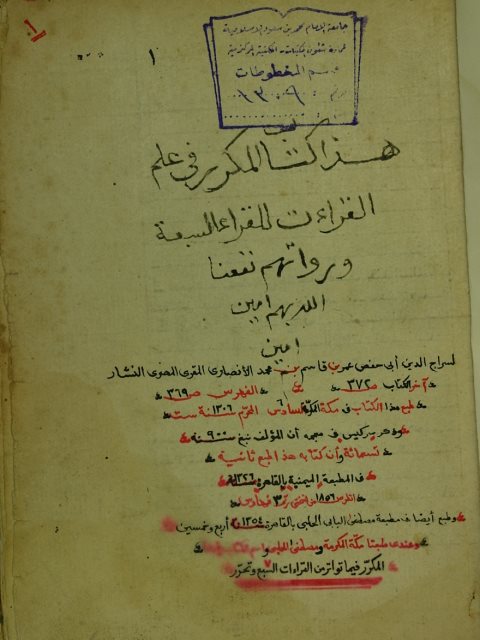 جامعة الإمام محمد بن سعود الإسلامية
عمادة شئون المكتبات - المكتبة المركزية
قسم المخطوطات
رقم : ١٣٠٩
١
هذا كتاب المكرر في علم
القراءت للقراء السبعة
ورواتهم نفعنا
الله بهم امين
امين
لسراج الدين أبي حفص عمر بن قاسم بن محمد الأنصاري المقرئ المصري النشار
آخر الكتاب ص ٣٧٢ الفهرس ص ٣٦٩
طبع هذا الكتاب في مكة المكرمة سادس المحرم سنة ١٣٠٦
وذكر سركيس في معجمه أن المؤلف نبغ سنة ٩٠٠
تسعمائة وأن كتابه هذا طبع ثانية
في المطبعة الميمنية بالقاهرة سنة ١٣٢٦
وطبع أيضا في مطبعة مصطفى البابي الحلبي بالقاهرة ١٣٥٤ أربع وخمسين
وعندي طبعتا مكة المكرمة ومصطفى الحلبي واسم
المكرر فيما تواتر من القراءات السبع وتحرر